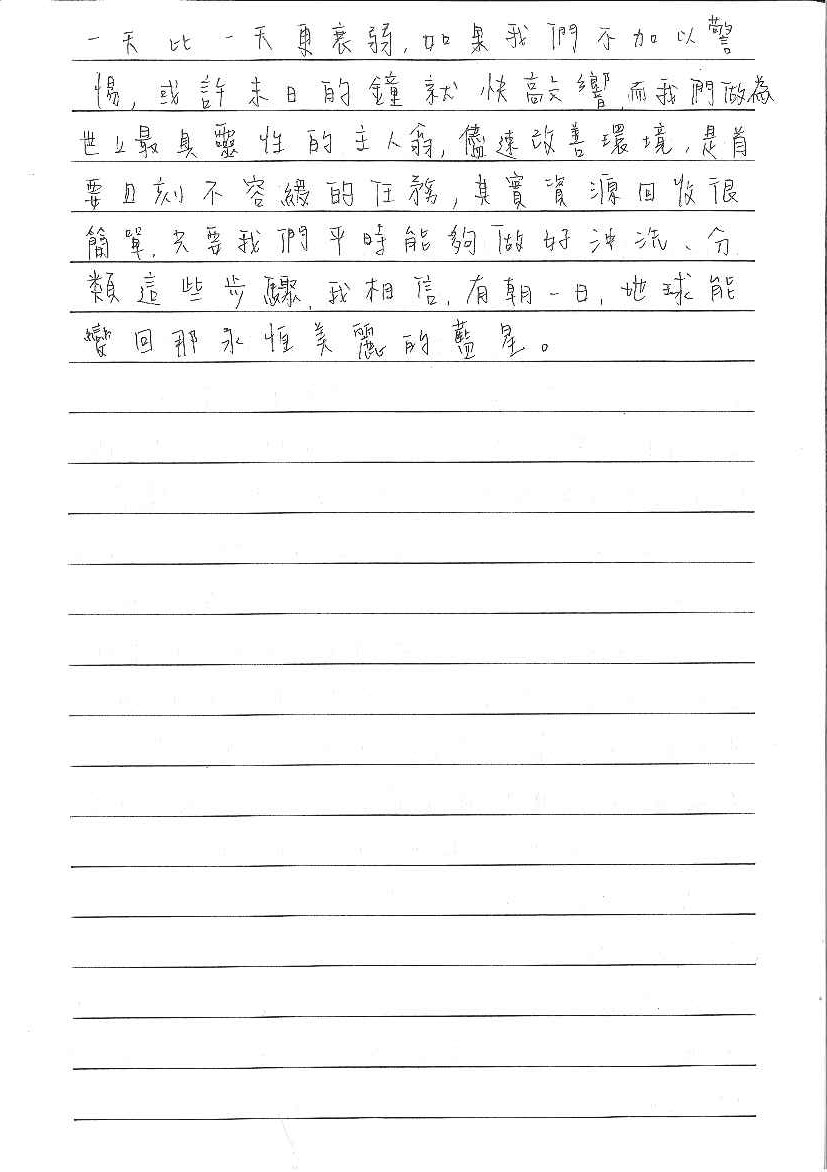 一天比一天更衰弱,如果我們不加以警
惕,或許末日的鐘就快敲響,而我們做為
世上最具靈性的主人翁,儘速改善環境,是首
要且刻不容緩的任務,其實資源回收很
簡單,只要我們平時能夠做好沖洗、分
類這些步驟,我相信,有朝一日,地球能
變回那永恆美麗的藍星。